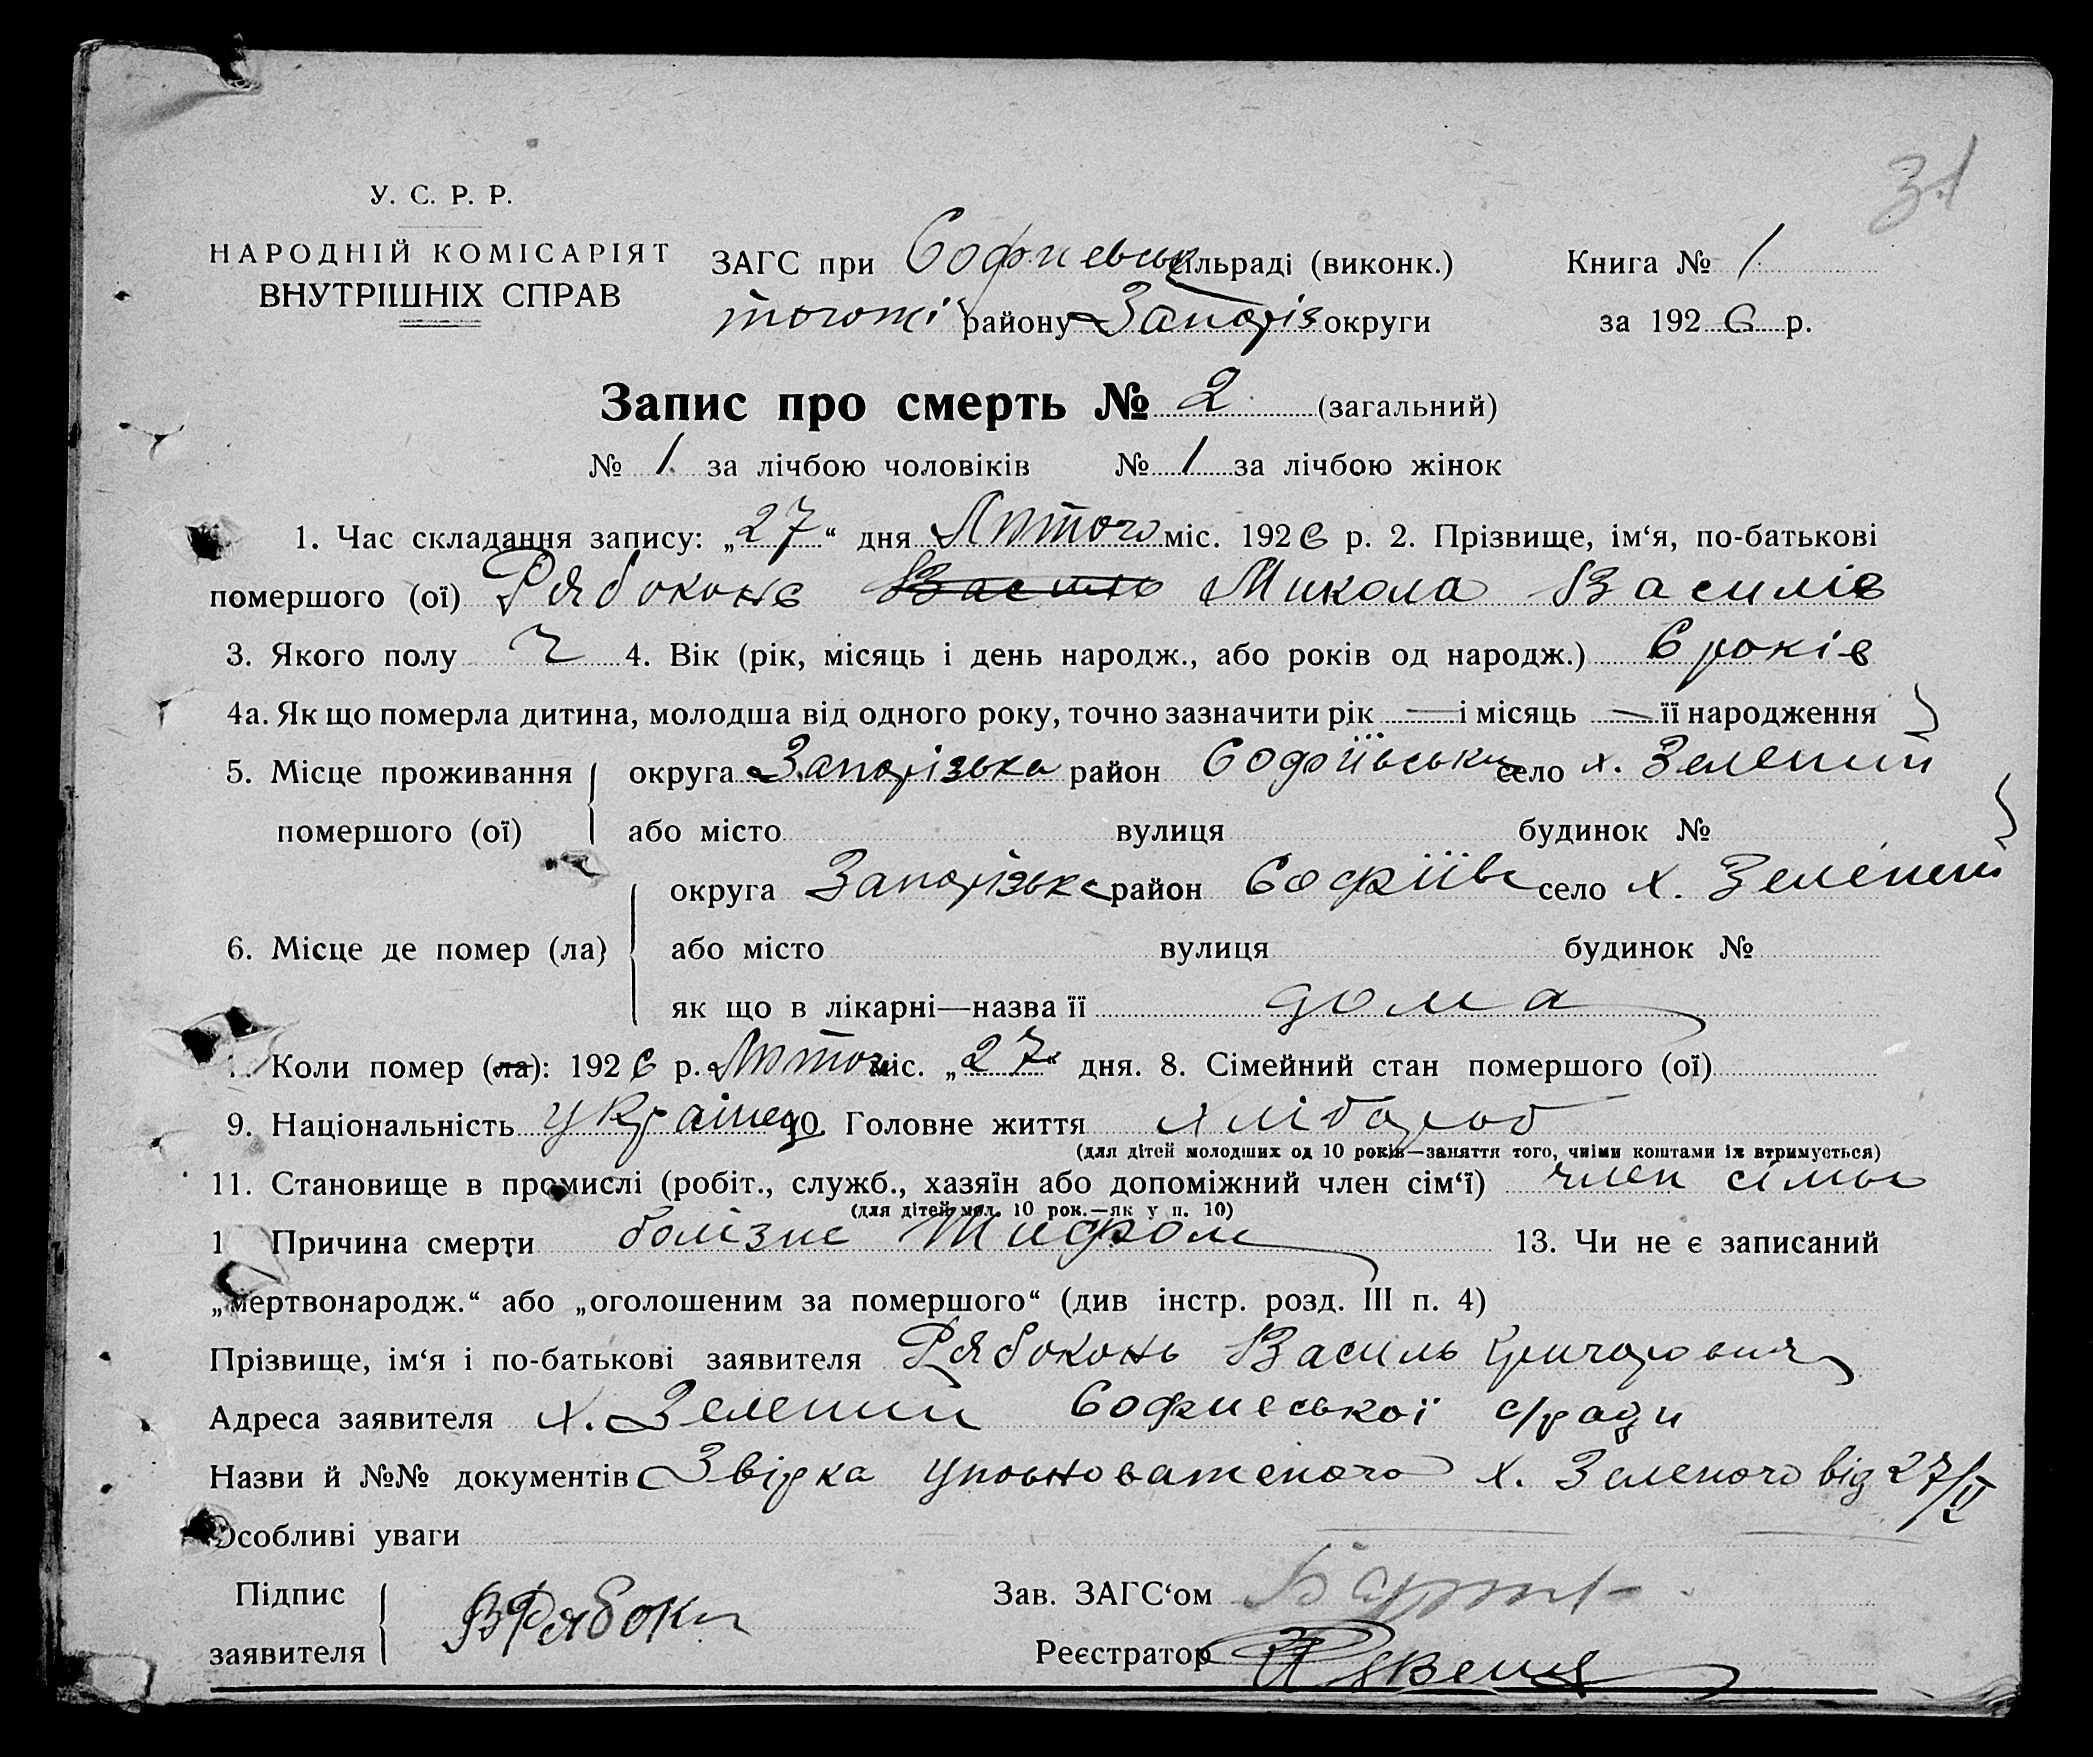 31
У. С. Р. Р.
НАРОДНІЙ КОМІСАРІЯТ
ВНУТРІШНІХ СПРАВ
ЗАГС при Софиевськ сільраді (виконк.)
тоготі району Запоріз округи
Книга № 1
за 1926 р.
Запис про смерть № 2 (загальний)
№ 1 за лічбою чоловіків № 1 за лічбою жінок
1. Час складання запису: „27“ дня Лютого міс. 1926 р. 2. Прізвище, ім‘я, по-батькові
помершого (ої) Рябоконь Василь Микола Василів
3. Якого полу ч 4. Вік (рік, місяць і день народж., або років од народж.) 6 років
4а. Як що померла дитина, молодша від одного року, точно зазначити рік — і місяць — її народження
5. Місце проживання округа Запорізька район Софіївськи село х. Зелений
помершого (ої) або місто вулиця будинок №
округа Запорізька район Софіївс село х. Зелений
6. Місце де помер (ла) або місто вулиця будинок №
як що в лікарні—назва її дома
Коли помер (ла): 1926 р. Лютого міс. „27“ дня. 8. Сімейний стан помершого (ої)
9. Національність украінец 10. Головне життя хлібороб
(для дітей молодших од 10 років—заняття того, чиїми коштами їх втримується)
11. Становище в промислі (робіт., служб., хазяїн або допоміжний член сім‘ї) член сімьи
(для дітей мол. 10 рок.—як у п. 10)
1 Причина смерти болізнь Тифом 13. Чи не є записаний
„мертвонародж.“ або „оголошеним за помершого“ (див інстр. розд. III п. 4)
Прізвище, ім‘я і по-батькові заявителя Рябоконь Василь Григорович
Адреса заявителя х. Зелений Софиеської с/ради
Назви й №№ документів Звірка уповноваженого х. Зеленого від 27/II
Особливі уваги
Підпис
заявителя
ВРябокн
Зав. ЗАГС‘ом
Реєстратор